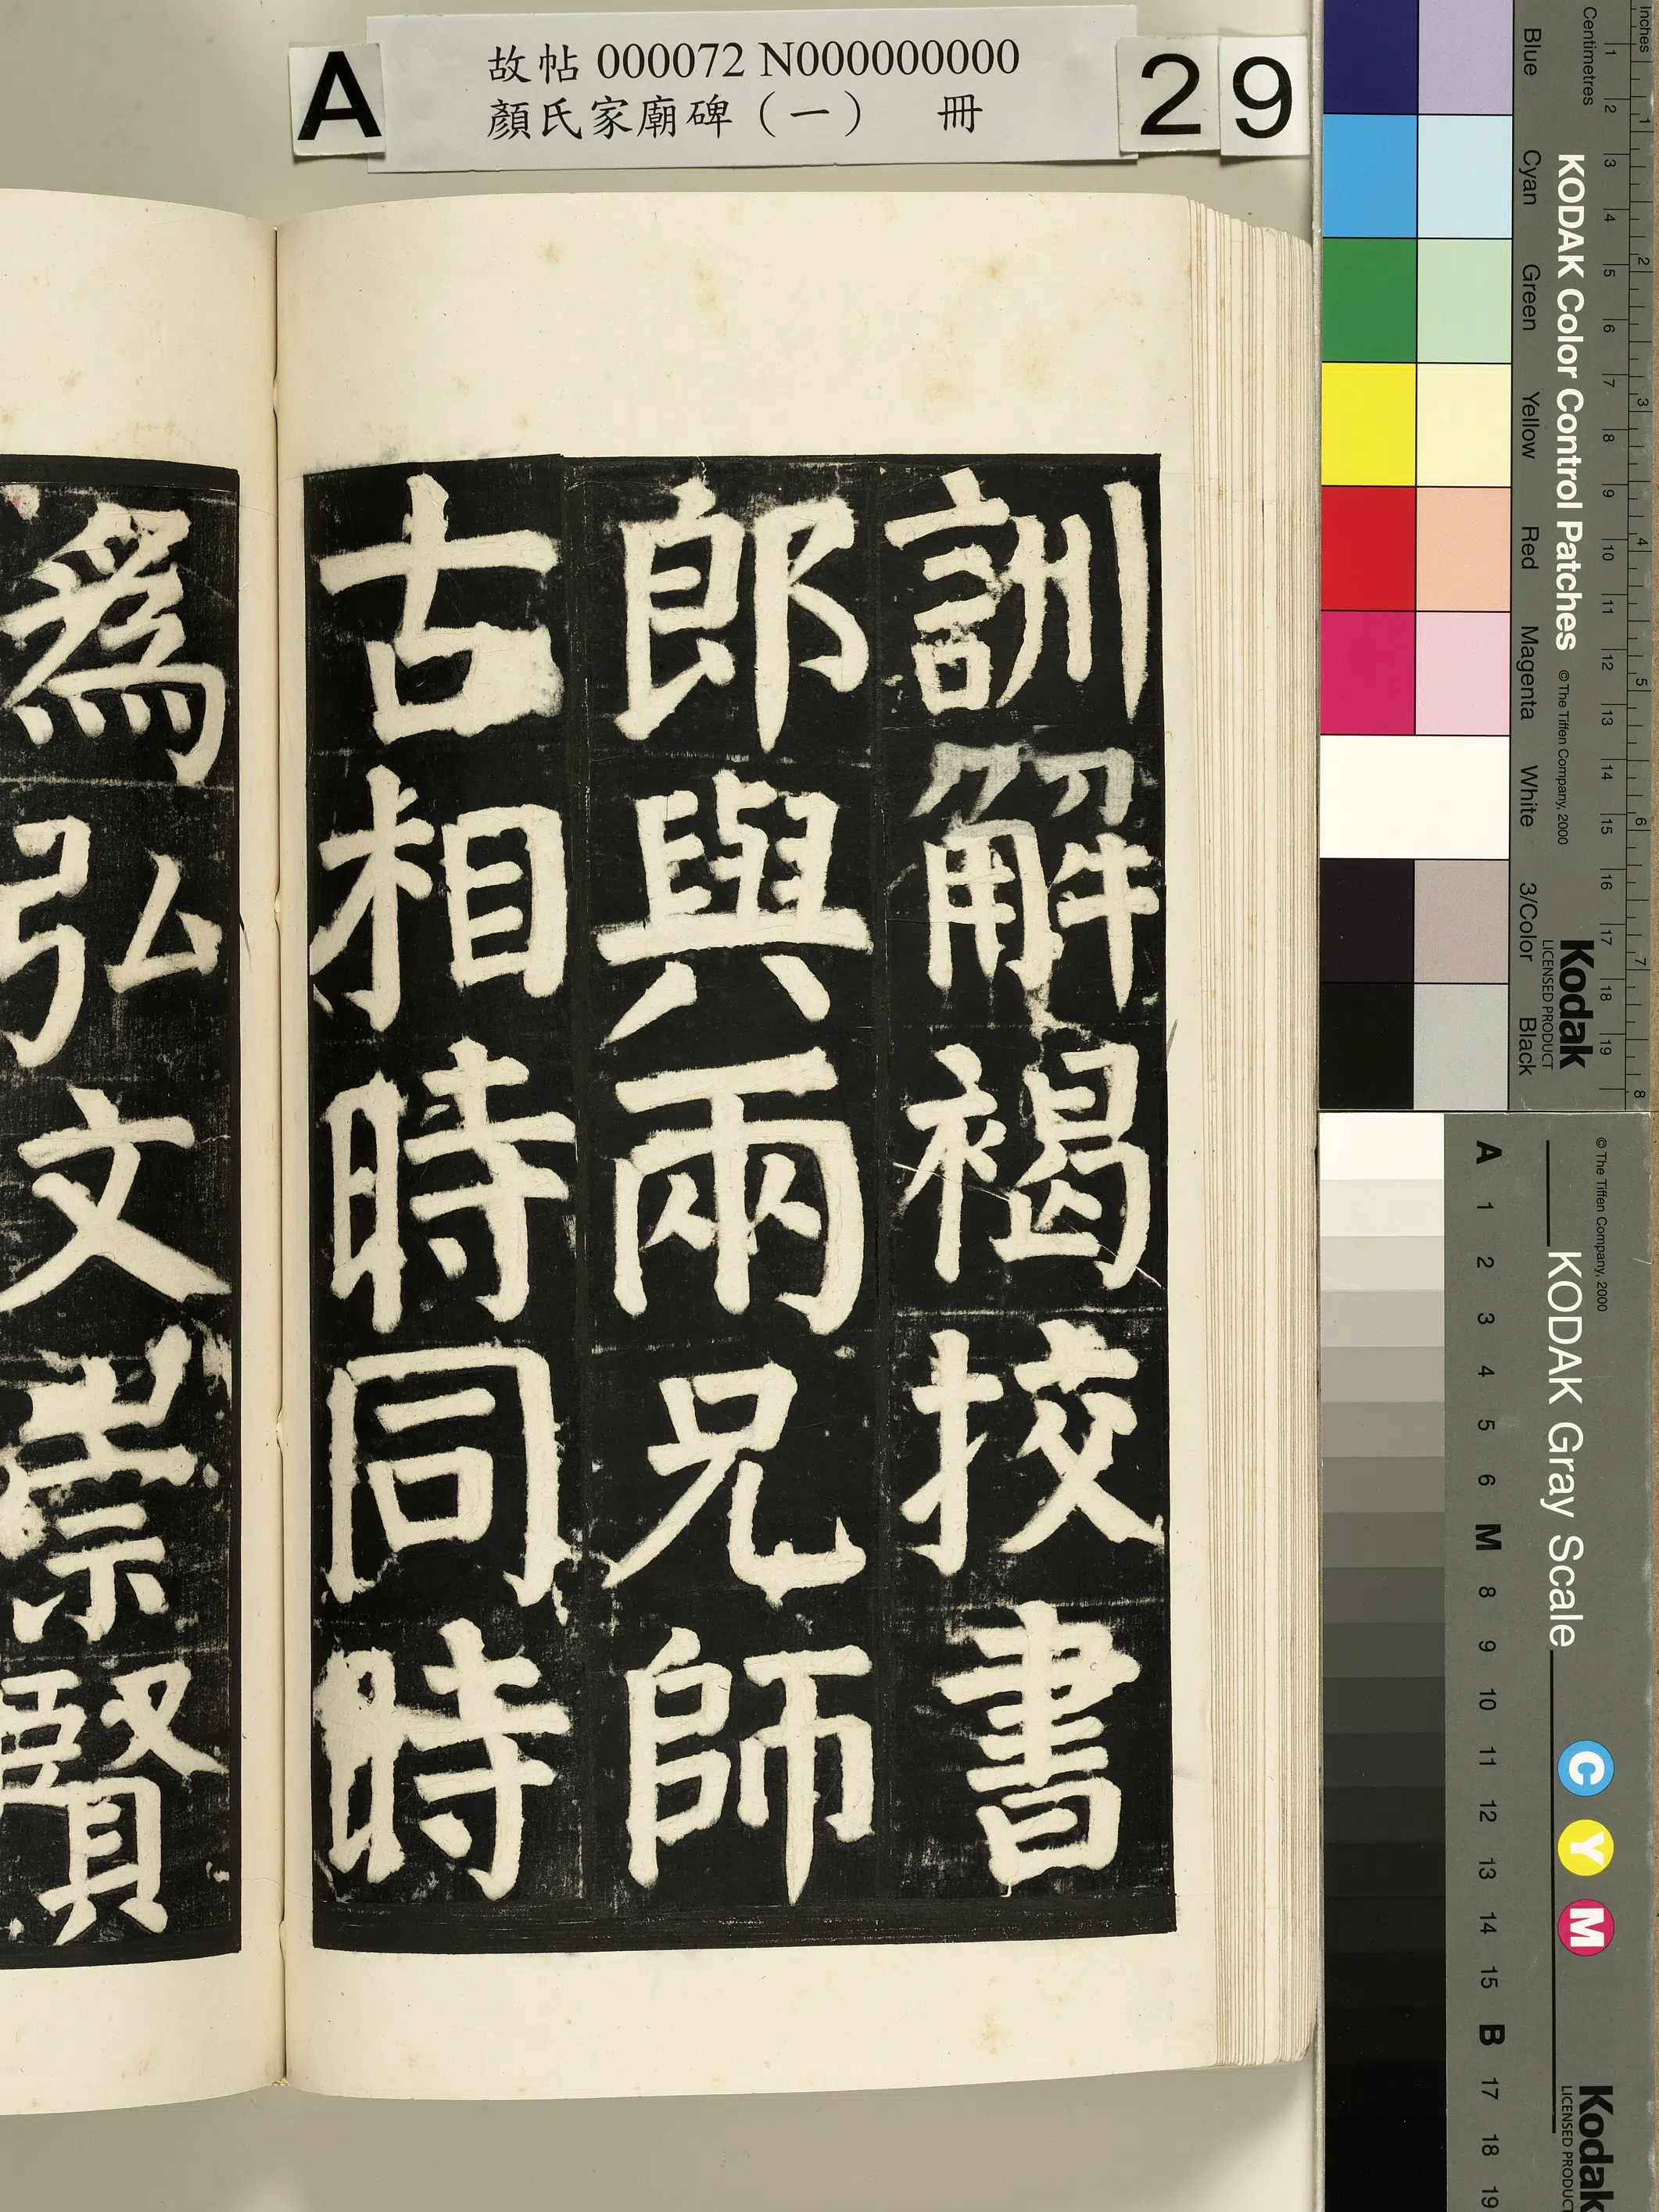 A
故帖 000072 N000000000
顏氏家廟碑（一） 冊
29
訓解褐挍書
郎與兩兄師
古相時同時
爲弘文崇賢
Inches
Centimetres
1 2 3 4 5 6 7 8 9 10 11 12 13 14 15 16 17 18 19
1 2 3 4 5 6 7 8
KODAK Color Control Patches
© The Tiffen Company, 2000
Kodak
LICENSED PRODUCT
Blue Cyan Green Yellow Red Magenta White 3/Color Black
© The Tiffen Company, 2000
KODAK Gray Scale
C Y M
Kodak
LICENSED PRODUCT
A 1 2 3 4 5 6 M 8 9 10 11 12 13 14 15 B 17 18 19